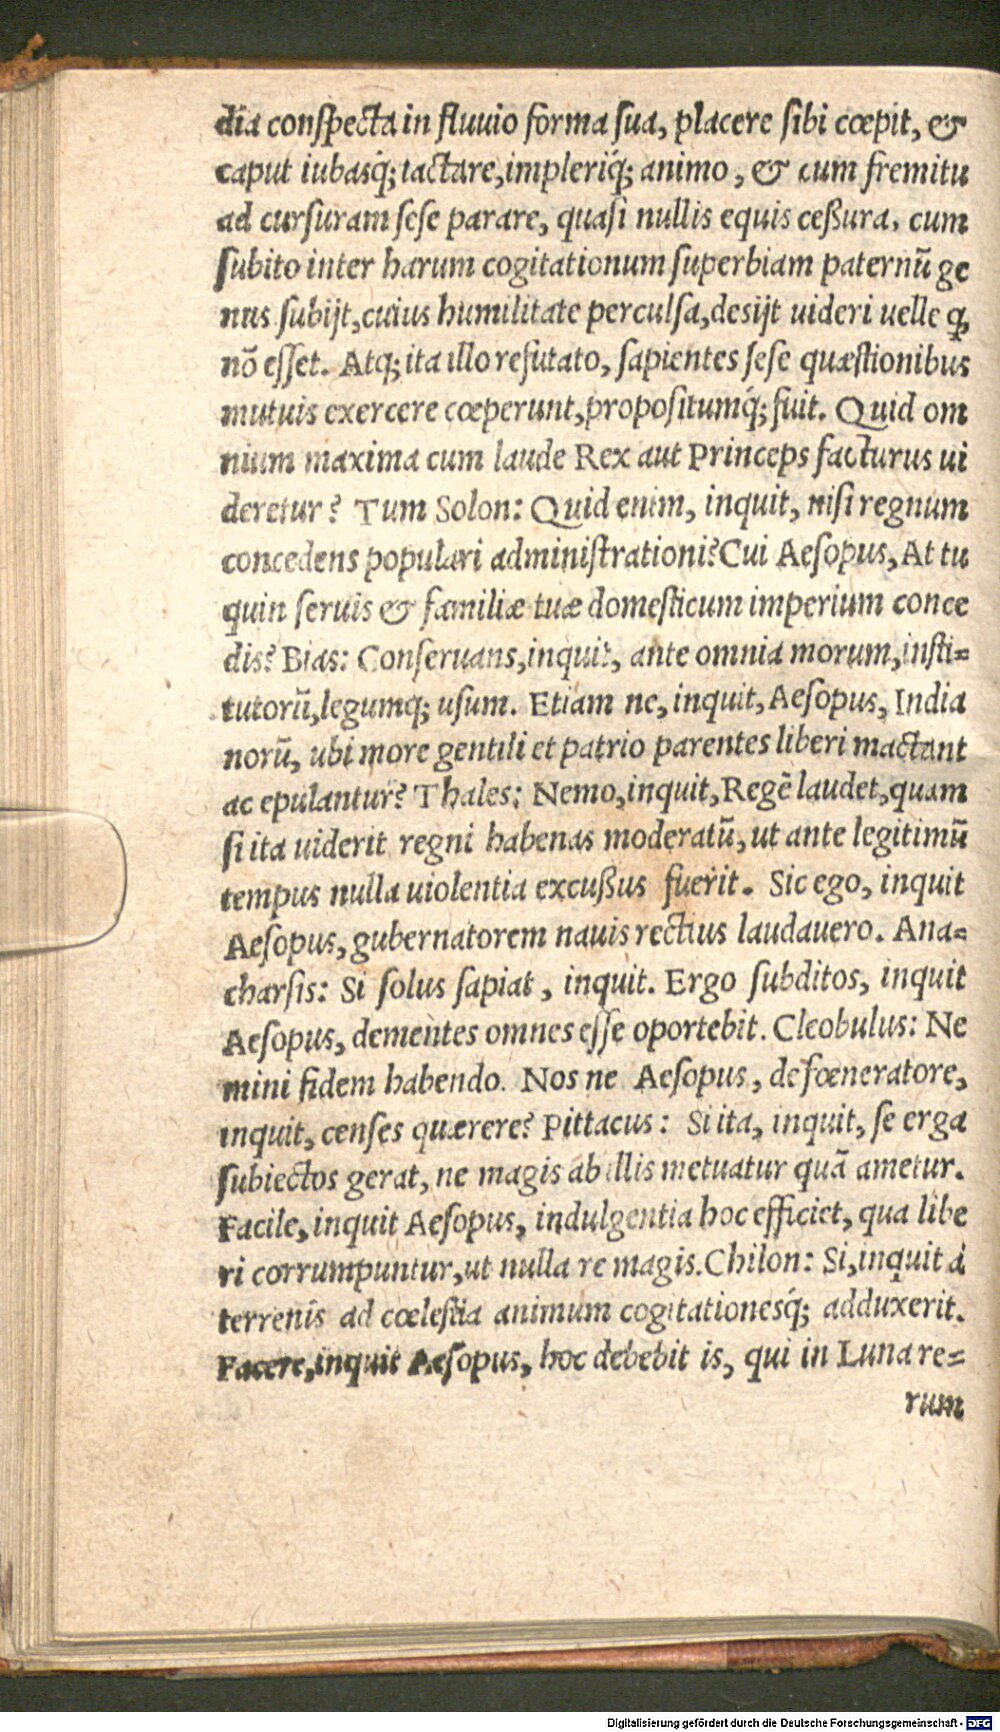 dia conspecta in fluuio forma sua, placere sibi cœpit, &
caput iubasq́; iactare, impleriq́; animo, & cum fremitu
ad cursuram sese parare, quasi nullis equis ceßura, cum
subito inter harum cogitationum superbiam paternũ ge
nus subijt, cuius humilitate perculsa, desijt uideri uelle q̃
nõ esset. Atq; ita illo refutato, sapientes sese quæstionibus
mutuis exercere cœperunt, propositumq́; fuit. Quid om
nium maxima cum laude Rex aut Princeps facturus ui
deretur? Tum Solon: Quid enim, inquit, nisi regnum
concedens populari administrationi? Cui Aesopus, At tu
quin seruis & familiæ tuæ domesticum imperium conce
dis? Bias: Conseruans, inquit, ante omnia morum, insti=
tutorũ, legumq; usum. Etiam ne, inquit, Aesopus, India
norũ, ubi more gentili et patrio parentes liberi mactant
ac epulantur? Thales: Nemo, inquit, Regẽ laudet, quam
si ita uiderit regni habenas moderatũ, ut ante legitimũ
tempus nulla uiolentia excußus fuerit. Sic ego, inquit
Aesopus, gubernatorem nauis rectius laudauero. Ana=
charsis: Si solus sapiat, inquit. Ergo subditos, inquit
Aesopus, dementes omnes esse oportebit. Cleobulus: Ne
mini fidem habendo. Nos ne Aesopus, de fœneratore,
inquit, censes quærere? Pittacus: Si ita, inquit, se erga
subiectos gerat, ne magis ab illis metuatur quã ametur.
Facile, inquit Aesopus, indulgentia hoc efficiet, qua libe
ri corrumpuntur, ut nulla re magis. Chilon: Si, inquit à
terrenis ad cœlestia animum cogitationesq́; adduxerit.
Facere, inquit Aesopus, hoc debebit is, qui in Luna re=
rum
Digitalisierung gefördert durch die Deutsche Forschungsgemeinschaft - DFG